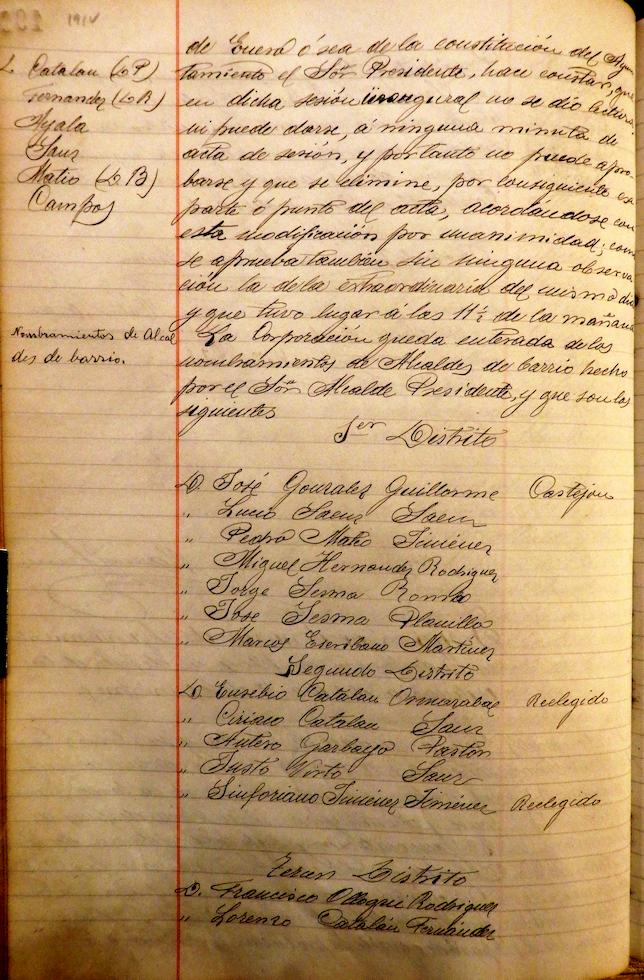 1914
Catalan (D P)
Fernandez (D R)
Ayala
Sanz
Mateo (D B)
Campos
de Enero ó sea de la constitución del Ayun
tamiento el Sor Presidente, hace constar, que
en dicha sesión inaugural no se dio lectura
ni puede darse, á ninguna minuta de
acta de sesión, y por tanto no puede apro-
barse y que se elimine, por consiguiente esa
parte ó punto del acta, acordándose con
esta modificación por unanimidad; como
se aprueba también sin ninguna observa
ción la de la extraordinaria del mismo dia
y que tuvo lugar á las 11½ de la mañana
Nombramientos de Alcal
des de barrio.
La Corporación queda enterada de los
nombramientos de Alcaldes de barrio hecho
por el Sor Alcalde Presidente, y que son los
siguientes
1er Distrito
D. José Gonzalez Guillorme Castejon
" Lucio Saenz Saenz
" Pedro Mateo Jiménez
" Miguel Hernandez Rodriguez
" Jorge Sesma Romano
" José Sesma Planillo
" Marcos Escribano Martínez
Segundo Distrito
D. Eusebio Catalan Ormazabal Reelegido
" Ciriaco Catalan Sanz
" Antero Garbayo Pastor
" Justo Virto Sanz
" Sinforiano Jiménez Jiménez Reelegido
Tercer Distrito
D. Francisco Olloqui Rodriguez
" Lorenzo Catalán Fernández